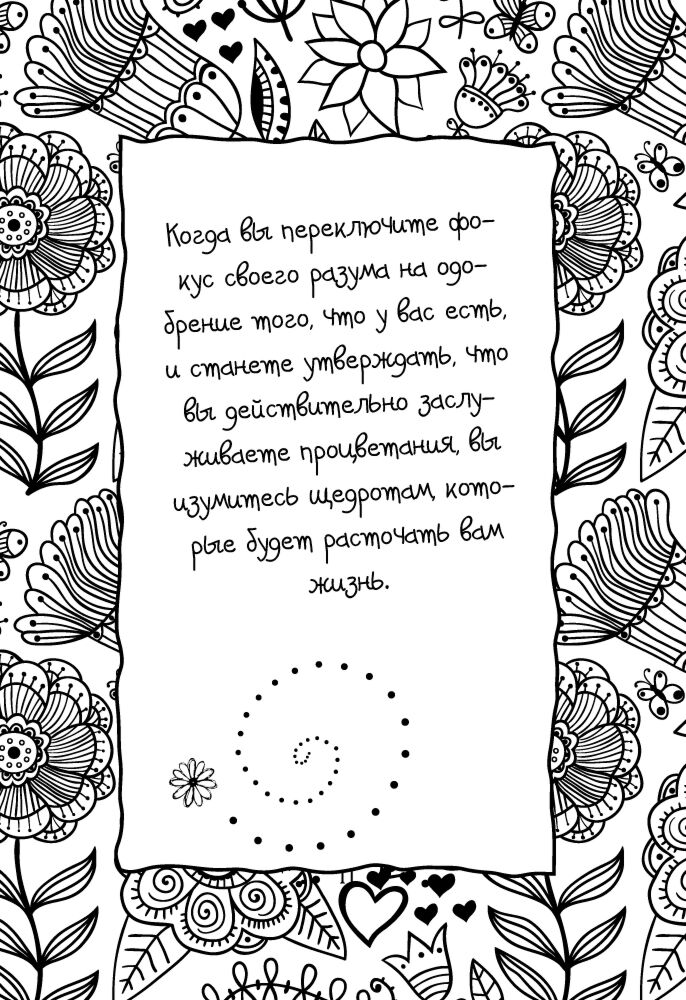 Когда вы переключите фо-
кус своего разума на одо-
брение того, что у вас есть,
и станете утверждать, что
вы действительно заслу-
живаете процветания, вы
изумитесь щедротам, кото-
рые будет расточать вам
жизнь.